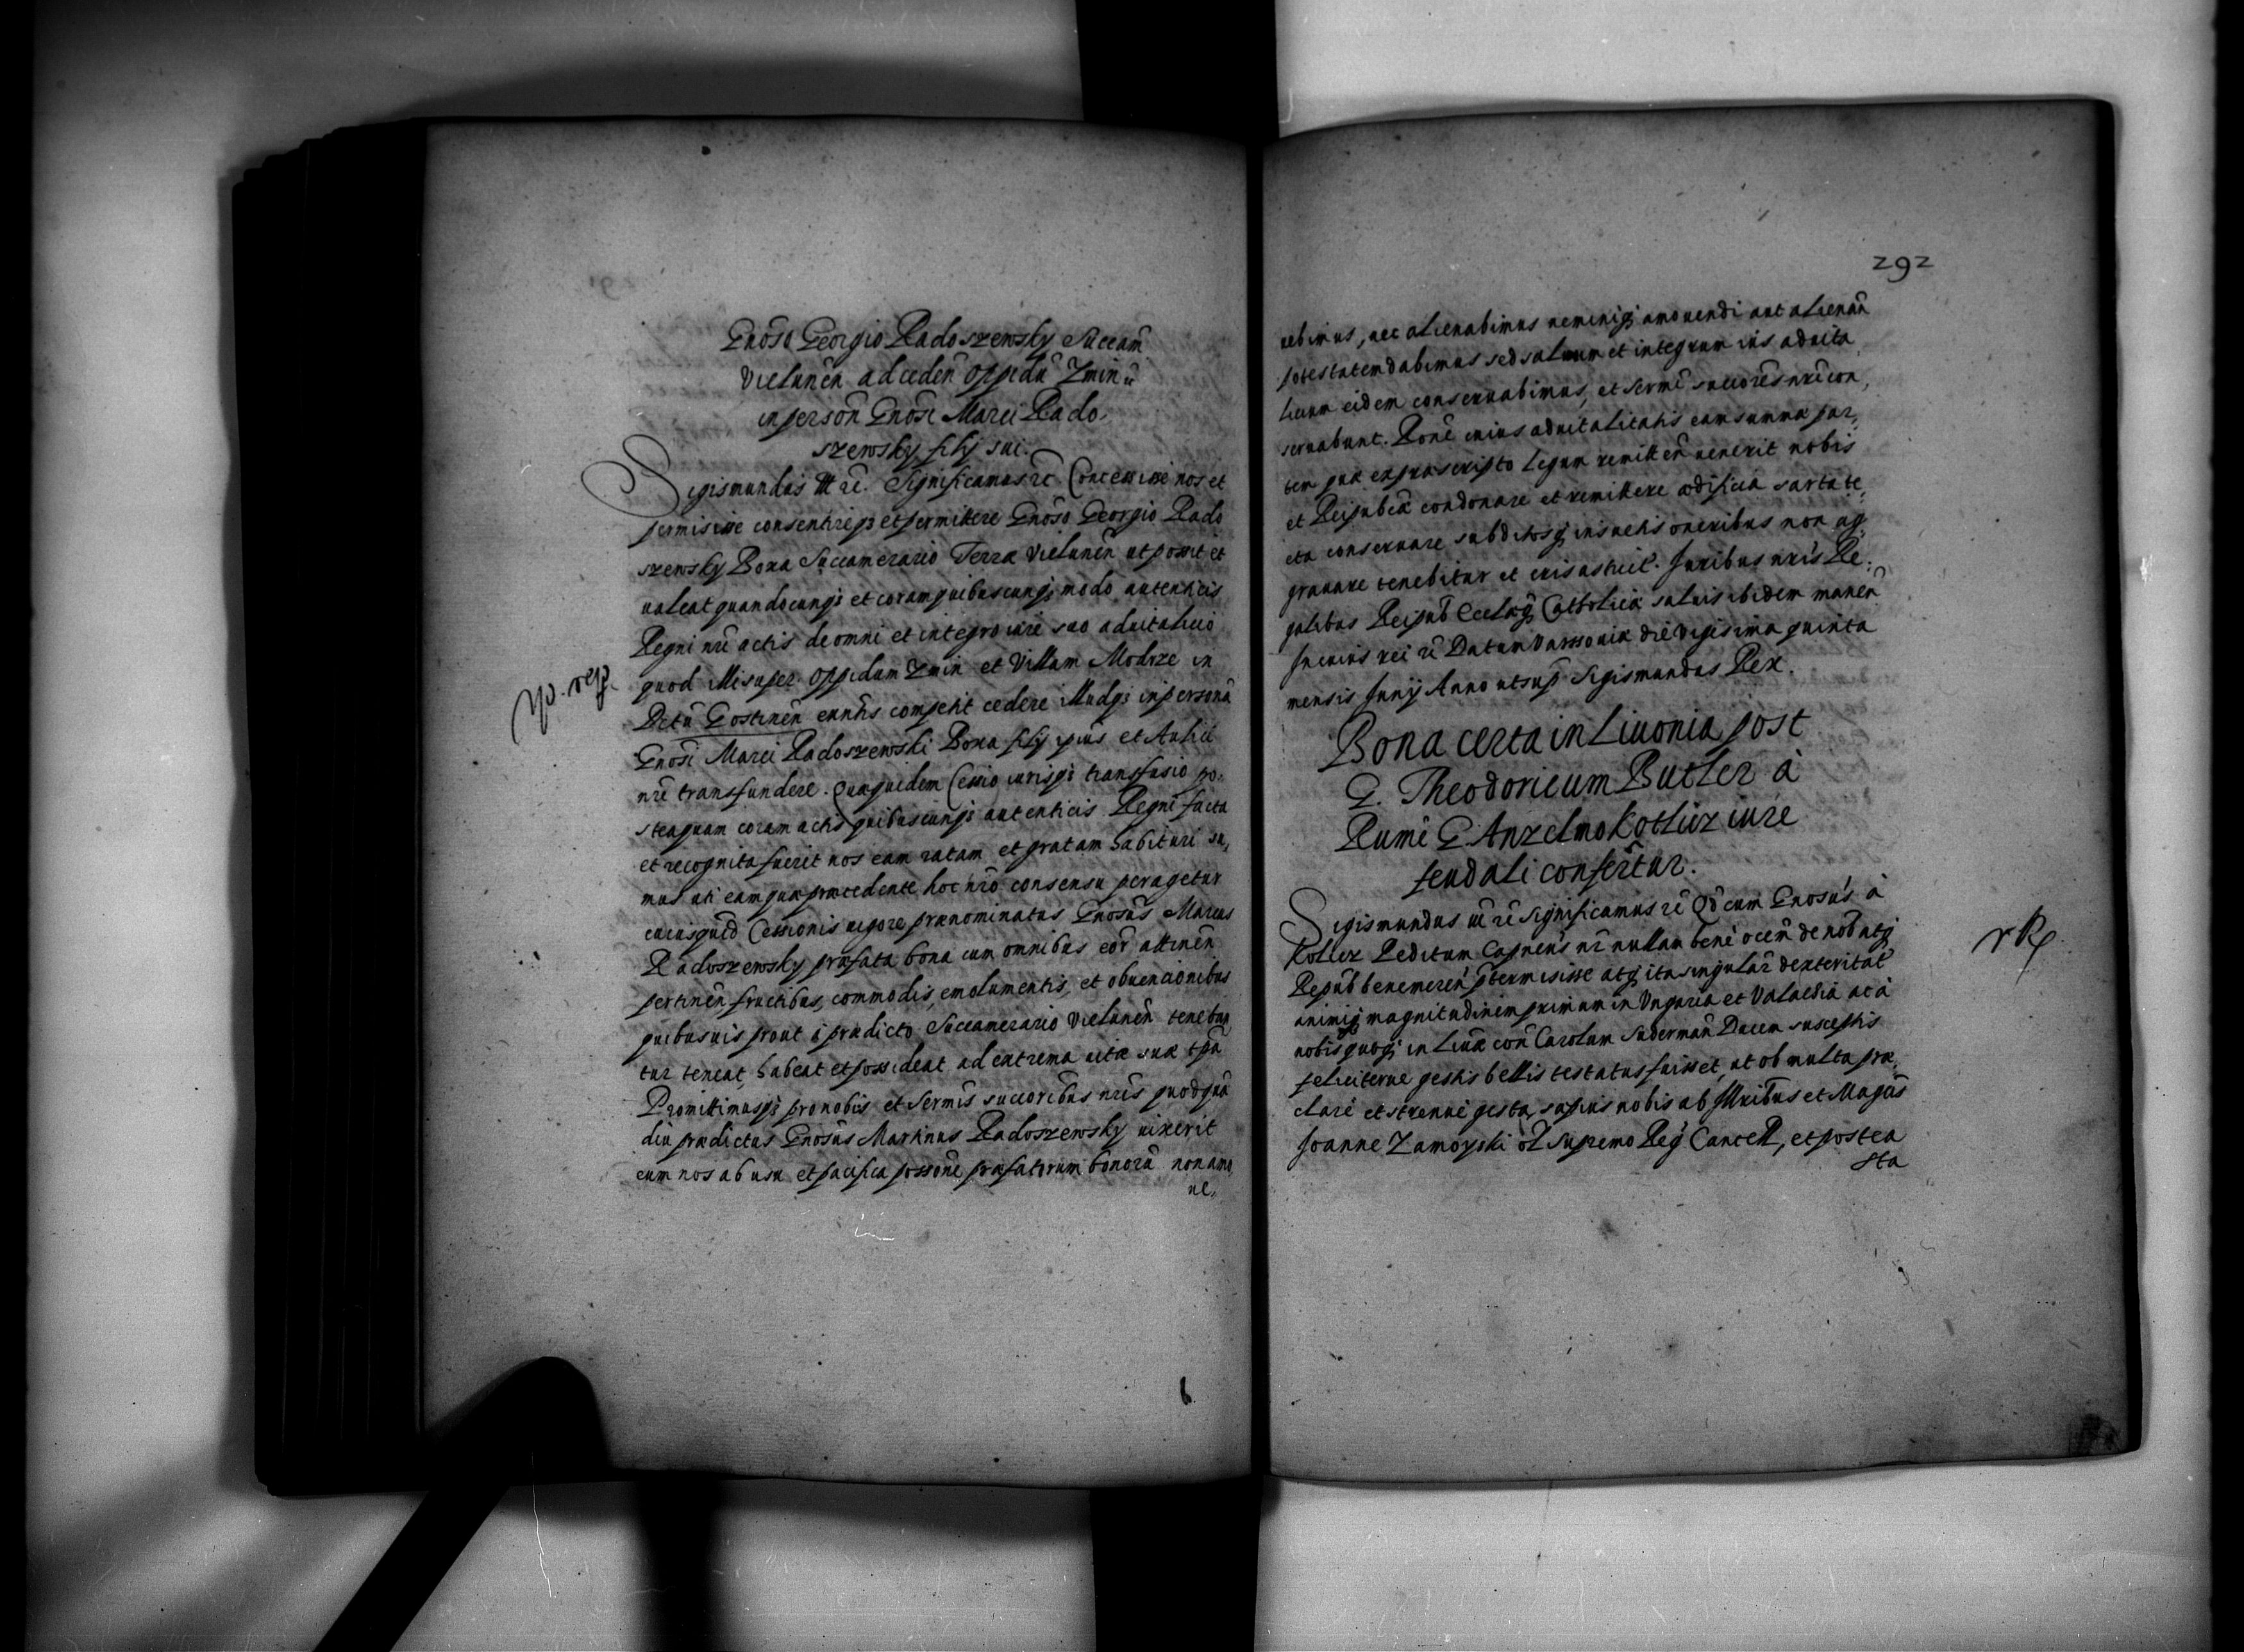 Gnōso Georgio Radoszewsky Succam̄
Vielunēn ad ceden̄ Oppidū Zmin
in persōn Gnōsi Marci Rado,
szewsky filij sui.
Sigismundus III rē. Significamus rē Concessisse nos et
permisisse consentireq3 et permittere Gnōso Georgio Rado
szewsky Boxa Succamerario Terræ Vielunēn ut possit et
ualeat quandocunq3 et coram quibuscunq3 modo autenticis
Regni nrī actis de omni et integro iure suo aduitalicio
quod illi super Oppidum Zmin et Villam Modrze in
Dctū Gostinēn exntīs competit cedere illudq3 in personā
Gnosi Marci Radoszewski Boxa filij ipius et Aulici
nrī transfundere. Quæquidem Cessio iurisq3 transfusio po,
steaquam coram actis quibuscunq3 autenticis Regni facta
et recognita fuerit nos eam ratam et gratam habituri su,
mus uti eam quæ præcedente hoc nrō consensu peragetur
cuiusquid Cessionis uigore prænominatus Gnosus Marcus
Radoszewsky præfata bona cum omnibus eor attinēn
pertinēn fructibus, commodis, emolumentis, et obuencionibus
quibusuis prout à prædicto Succamerario Vielunēn tenebun
tur teneat, habeat et possideat ad extrema uitæ suæ tp̄a
Promittimusq3 pro nobis et Sermīs succoribus nrīs quod quā
diu prædictus Gnosus Martinus Radoszewsky uixerit
eum nos ab usu et pacifica possōne præfatorum bonorū non amo,
ue,
Yo. resp.
292
uebimus, nec alienabimus neminiq3 amouendi aut alienān
potestatem dabimus sed saluum et integrum ius aduita
licium eidem conseruabimus, et Sermī succorēs nrī con,
seruabunt. Ronē cuius aduitalitatis eam summæ par,
tem quæ ex præscripto Legum remitten̄ uenerit nobis
et Reipublcæ condonare et remittere ædificia sarta te,
cta conseruare subditosq3 insuetis oneribus non ag
grauare tenebitur et erit astrict. Iuribus nrīs Re,
galibus Reipub̄ Ecclæq3 Catholicæ saluis ibidem manēn
In cuius rei rē Datum Varssouiæ die Vigesima quinta
mensis Iunij Anno ut sup̄ Sigismundus Rex.
Bona certa in Liuonia post
G. Theodoricum Butler à
Rume G. Anzelmo Kotlicz iure
feudali conferētur.
Sigismundus III rē Significamus rē Qd̄ cum Gnosus à
Kotlicz Peditum Capneus nr̄ nullam bene occn̄ de nob̄ atq3
Repub̄ benemerēn p̄termisisse atq3 ita singular dexteritat
animiq3 magnitudinem primum in Vngaria et Valachia ac à
nobis quoq3 in Liuā con̄ Carolum Suderman̄ Ducem susceptis
feliciterue gestis bellis testatus fuisset, ut ob multa præ,
clare et strenue gesta, sæpius nobis ab Illribus et Magcis
Joanne Zamoyski ol Supremo Reg Cancell, et postea
Sta